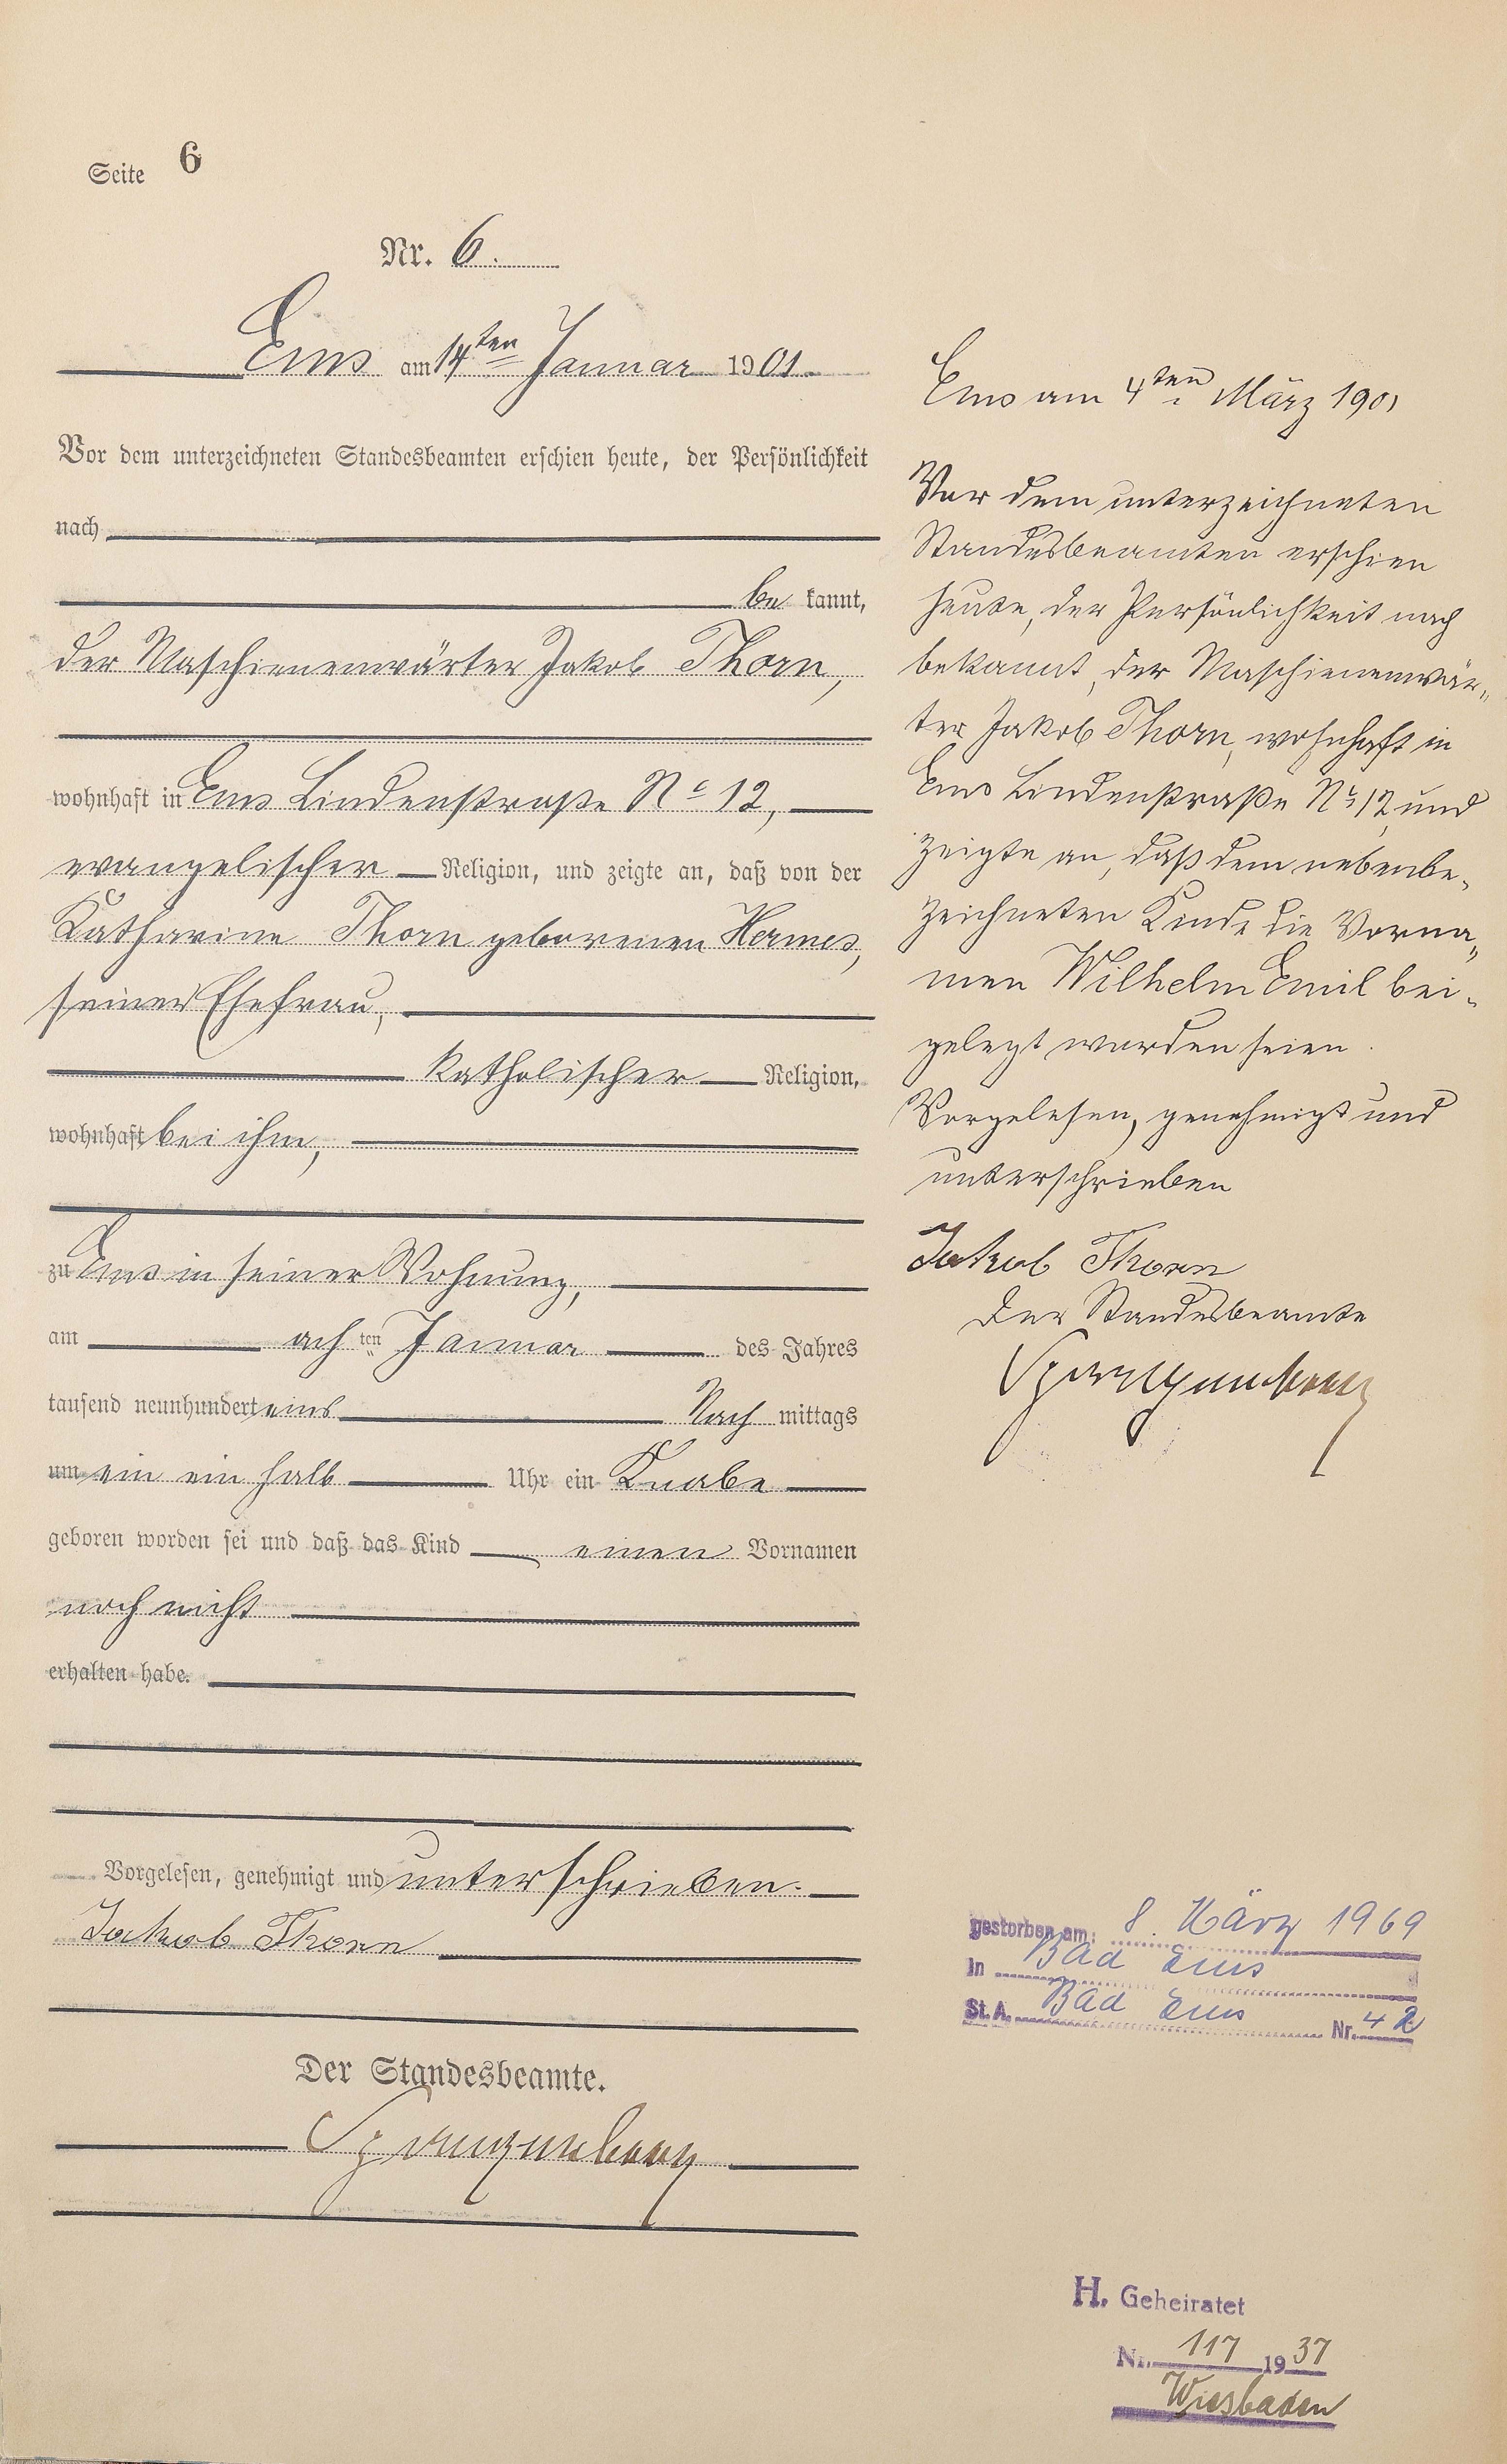 Seite 6
Nr. 6.
Ems am 14ten Januar 1901.
Vor dem unterzeichneten Standesbeamten erschien heute, der Persönlichkeit
nach
be kannt,
der Maschienenwärter Jakob Thorn,
wohnhaft in Ems Lindenstraße No 12,
evangelischer Religion, und zeigte an, daß von der
Katharine Thorn geborenen Hermes,
seiner Ehefrau,
katholischer Religion,
wohnhaft bei ihm,
zu Ems in seiner Wohnung,
am achten Januar des Jahres
tausend neunhundert eins Nach mittags
um ein ein halb Uhr ein Knabe
geboren worden sei und daß das Kind einen Vornamen
noch nicht
erhalten habe.
Vorgelesen, genehmigt und unterschrieben.
Jakob Thorn
Der Standesbeamte.
Ems am 4ten März 1901
Vor dem unterzeichneten
Standesbeamten erschien
heute, der Persönlichkeit nach
bekannt, der Maschienenwär-
ter Jakob Thorn, wohnhaft in
Ems Lindenstraße No 12 und
zeigte an, daß dem nebenbe-
zeichneten Kinde die Vorna-
men Wilhelm Emil bei-
gelegt worden seien.
Vorgelesen, genehmigt und
unterschrieben
Jakob Thorn
Der Standesbeamte
gestorben am: 8. März 1969
in Bad Ems
St.A. Bad Ems Nr. 42
H. Geheiratet
Nr. 117 1937
Wiesbaden